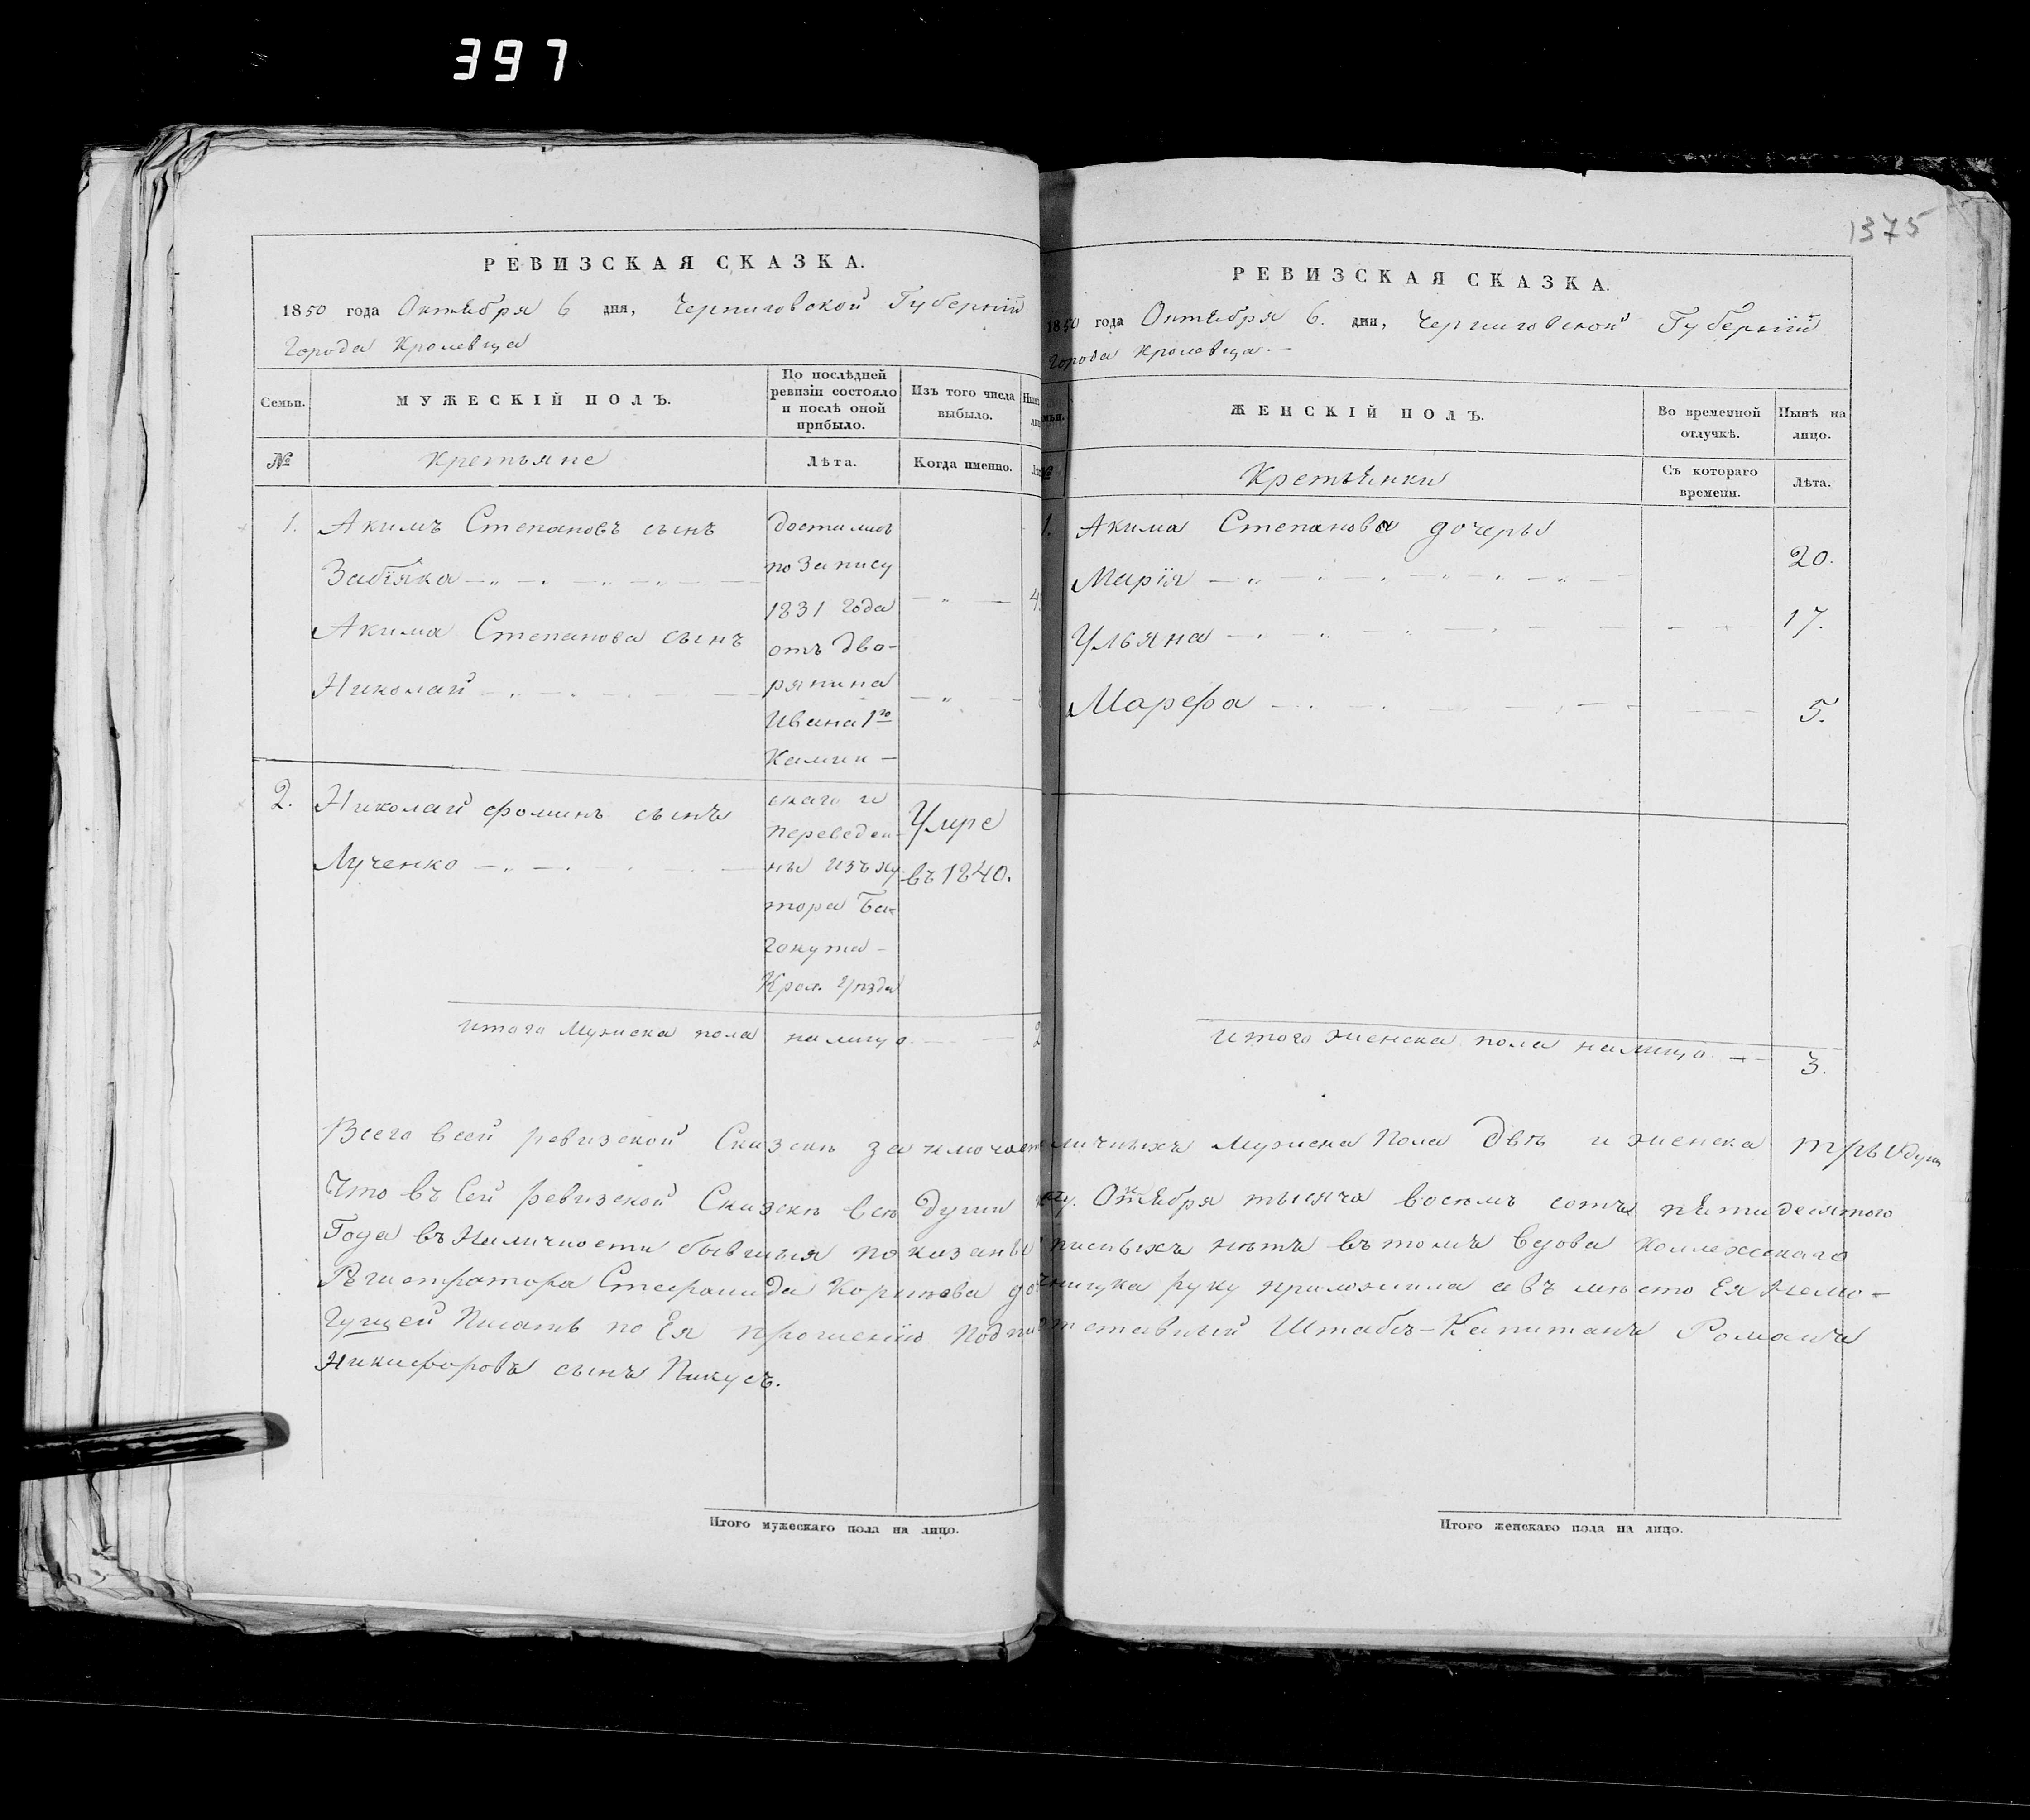 397
РЕВИЗСКАЯ СКАЗКА.
1850 года Октября 6 дня, Черниговской Губерніи
Города Кролевца
Семьи.
МУЖЕСКІЙ ПОЛЪ.
По послѣдней
ревизіи состояло
и послѣ оной
прибыло.
Изъ того числа
выбыло.
№
Крестьяне
Лѣта.
Когда именно.
1. Акимъ Степановъ сынъ
Забіяка
Акима Степанова сынъ
Николай
2. Николай Фоминъ сынъ
Лученко
Достались
по запису
1831 года
отъ дво-
рянина
Ивана 1го
Камин-
скаго и
переведен-
ны изъ ху
тора
Крол. Уѣзда
Умре
въ 1840.
итого мужеска пола налицо
2
Всего в сей ревизской Сказкѣ заключает
Что въ Сей ревизской Сказкѣ всѣ души
Года въ Наличности бывшыя показаны
Регистратора Стефанида
Гущей Писать по Ея прошенію
Никифоровъ сынъ Пикусъ.
Итого мужескаго пола на лицо.
1375
РЕВИЗСКАЯ СКАЗКА.
1850 года Октября 6. дня, Черниговской Губерніи
Города Кролевца.
ЖЕНСКІЙ ПОЛЪ.
Во временной
отлучкѣ.
Нынѣ на
лицо.
№
Крестьянки
Съ котораго
времени.
Лѣта.
1. Акима Степанова дочеры
Марія 20.
Ульяна 17.
Марефа 5.
итого женска пола налицо 3.
личныхъ мужеска Пола двѣ и женска три души
Октября тысяча восемъ сотъ пятидесятого
писныхъ нѣтъ въ томъ вдова Коллежскаго
руку приложила а въ мѣсто Ея Немо-
ставный Штабсъ-Капитанъ Романъ
Итого женскаго пола на лицо.